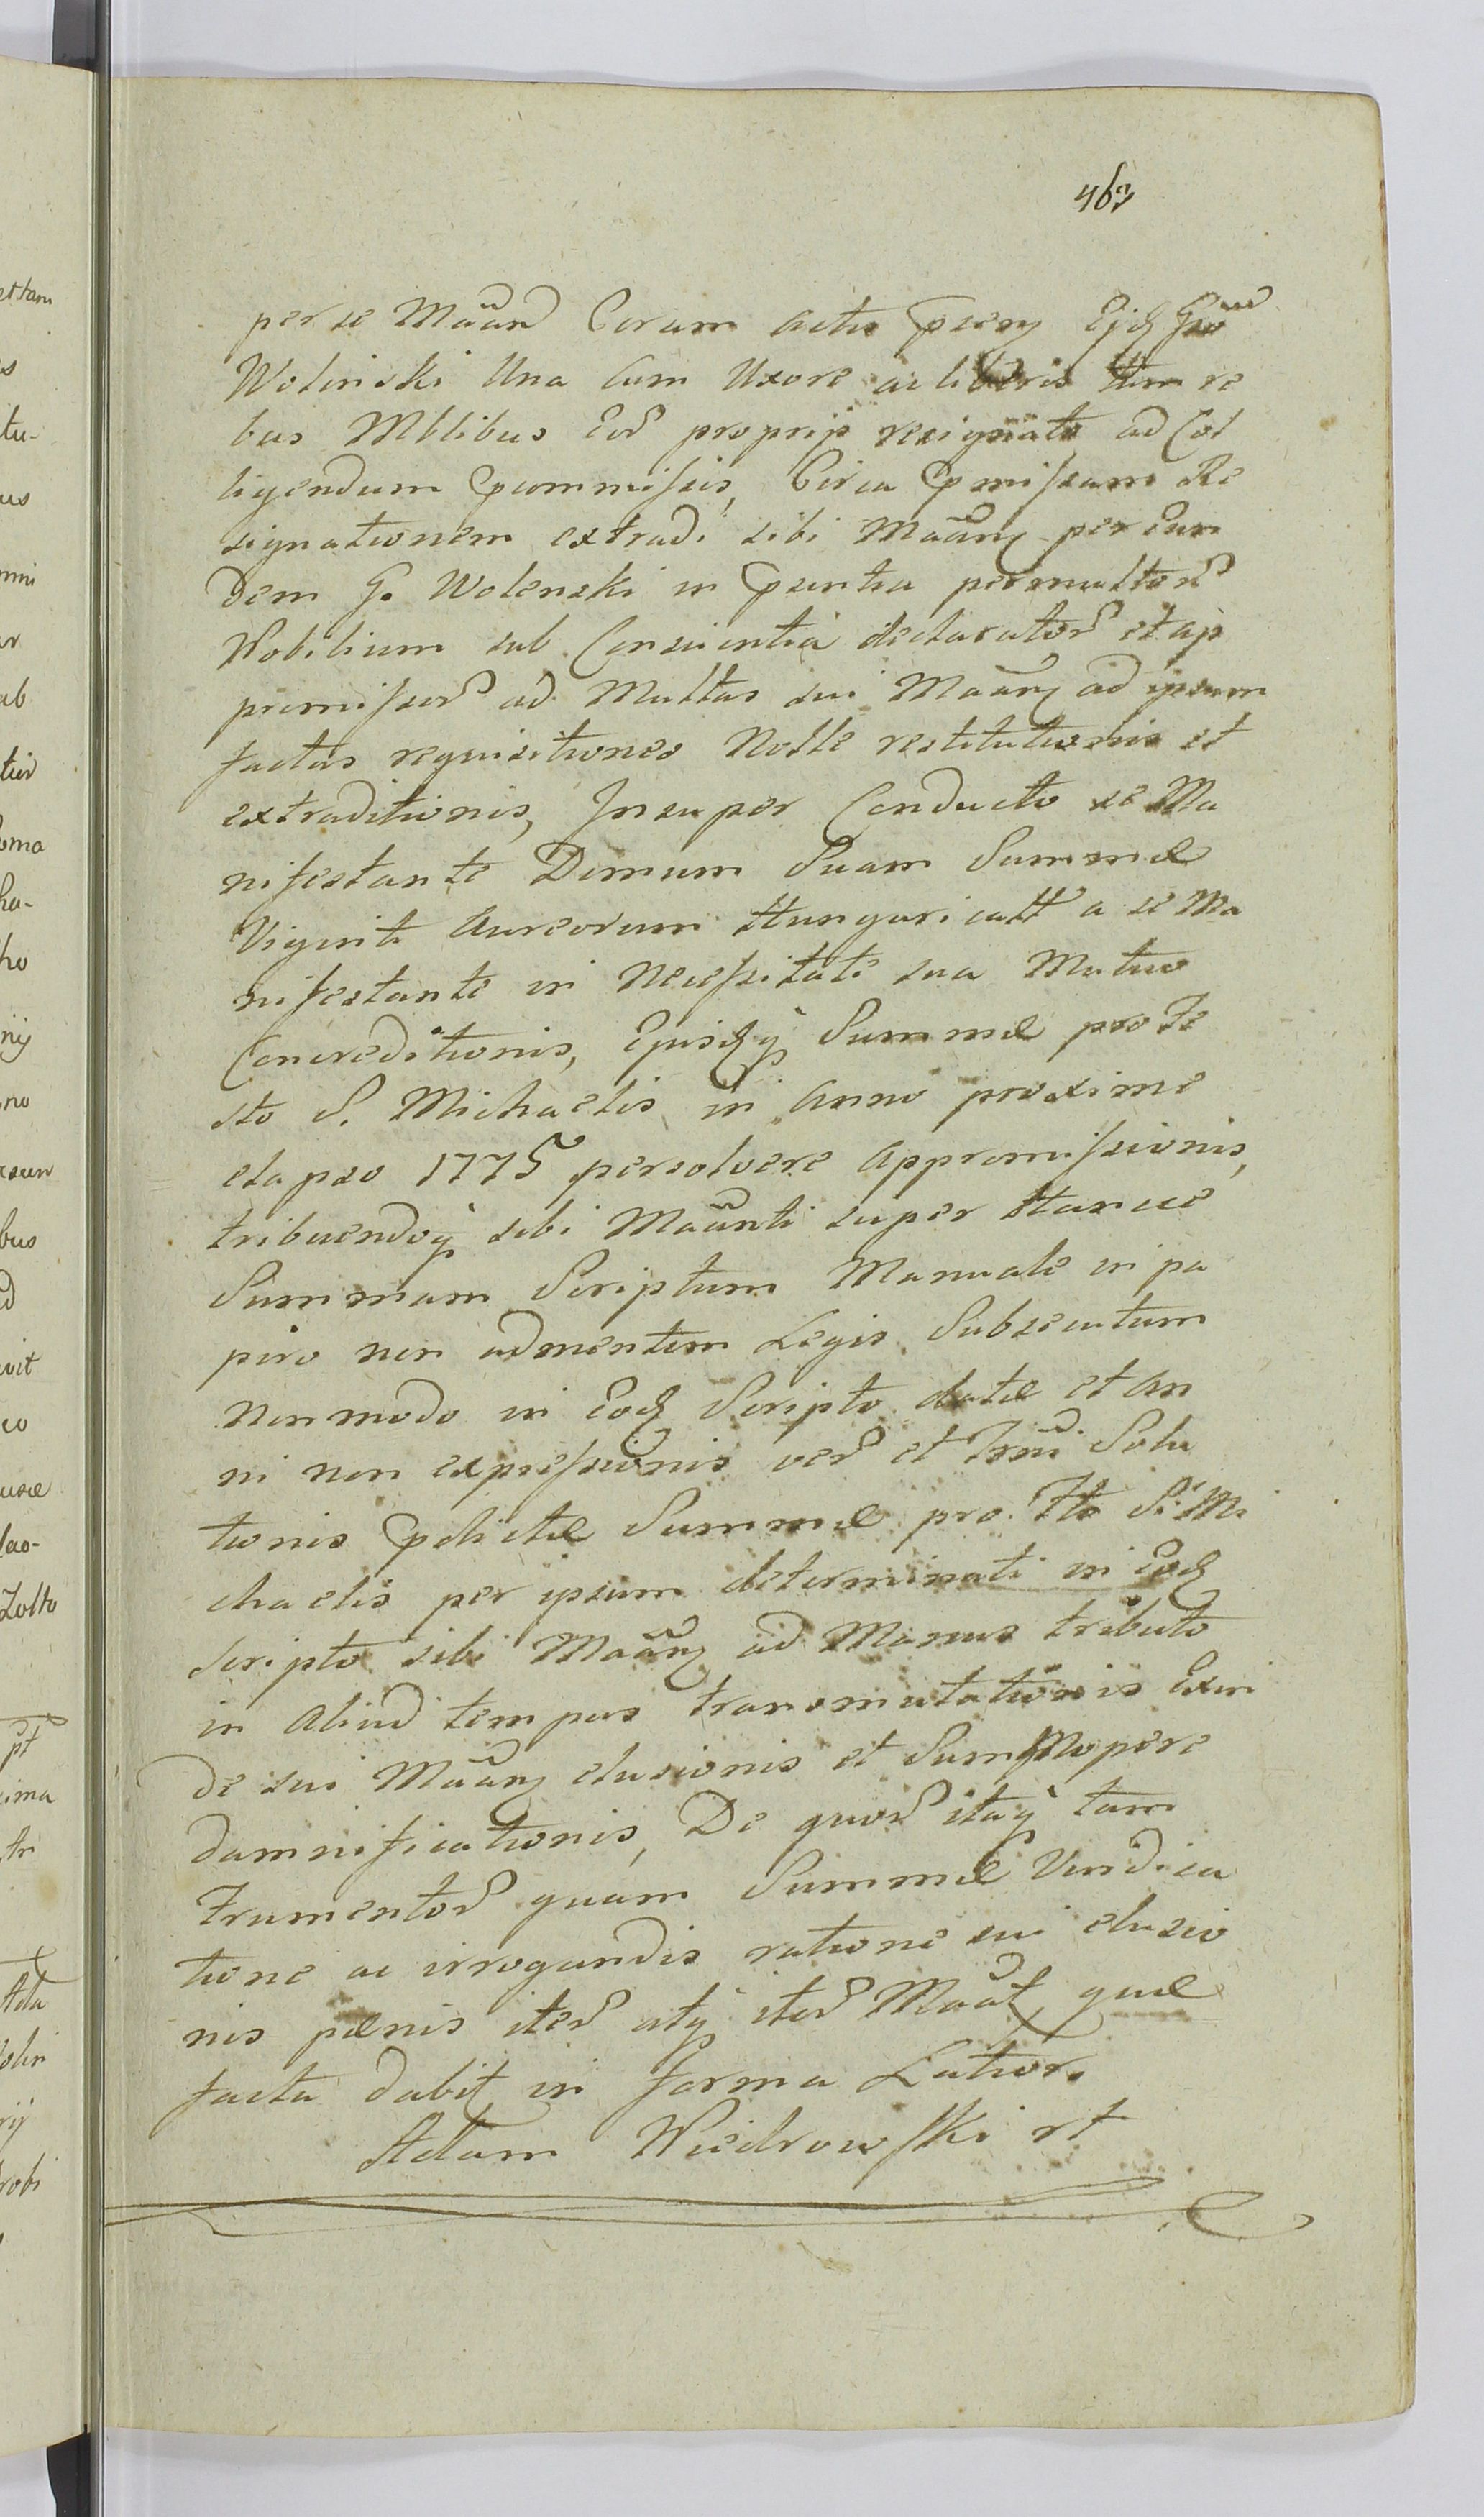 463
per se Maãnd Coram actu psenq Ejdq Gso
Wolinski Una Cum Uxore ac liberis tum re
bus Mblibus Eor proprijs resignato ad Col
ligendum Commissis, Circa pmissam Re
signationem extradi sibi Maãnq per Eun
dem G. Wolenski in psentia permultor
Nobilium sub Consientia declarator et ap
promissor ad Multas sui Maãnq ad ipsum
factas requisitiones Nolle restitutionis et
extraditionis, Insuper Conducto se Ma
nifestante Domum Suam Summæ
Viginti Aureorum Hungaricall a se Ma
nifestante in Necessitate sua Mutuo
Concreditionis, Ejusdq Summæ pro Fe
sto S. Michaelis in Anno proxime
elapso 1775 persolvere appromissionis,
tribuendoq sibi Maãnti super Hancce
Summam Scriptum Manuale in pa
piro non admentem Legis Subsecutum
Nonmodo in Eodq Scripto datæ et An
ni non expressionis ver et Tmi Solu
tionis pdictæ Summæ pro Fto S. Mi
chaelis per ipsum determinati in Eodq
Scripto sibi Maãnq ad Manus tributo
in Aliud tempus transmutationis Exin
de sui Maãnq elusionis et Summopere
damnificationis, De quor itaq tam
Frumentor quam Summæ Vindica
tione ac irrogandis ratione sui elusio
nis pænis iter atq iter Maãt, quæ
facta dabit in forma Latior.
Adam Wiedrowski rt